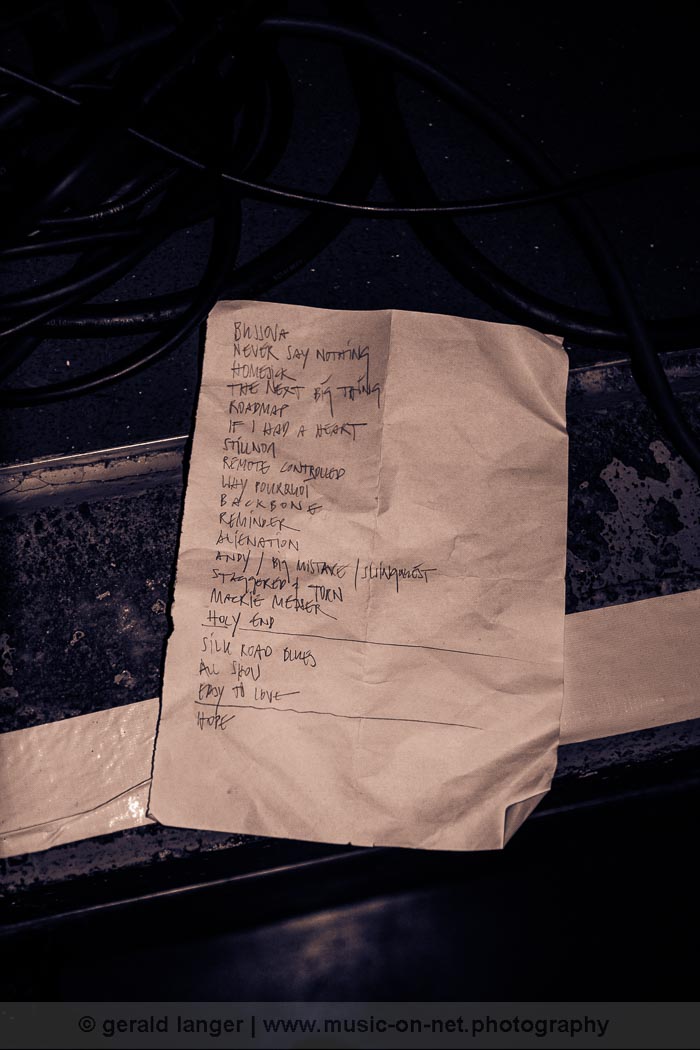 NEVER SAY NOTHING
HOMESICK
THE NEXT BIG THING
ROADMAP
IF I HAD A HEART
REMOTE CONTROLLED
WHY POURQUOI
BACKBONE
REMINDER
ALIENATION
ANDY / BIG MISTAKE /
STAGGERED & TORN
MACKIE MESSER
HOLY END
SILK ROAD BLUES
ALL SHOW
EASY TO LOVE
HOPE
© gerald langer | www.music-on-net.photography